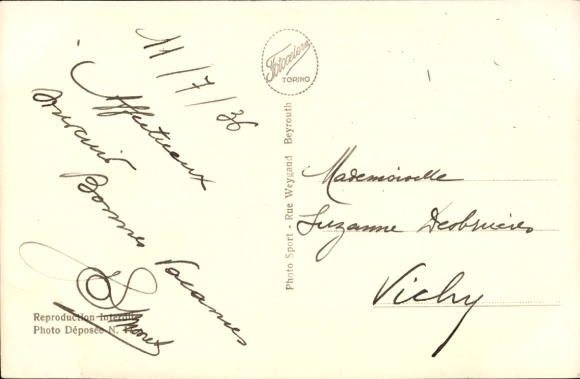 11/7/36
Affectueux
Souvenir Bonnes Vacances
Fotocelere
TORINO
Photo Sport - Rue Weygand Beyrouth
Mademoiselle
Suzanne Desbruères
Vichy
Reproduction Interdite
Photo Déposée N.